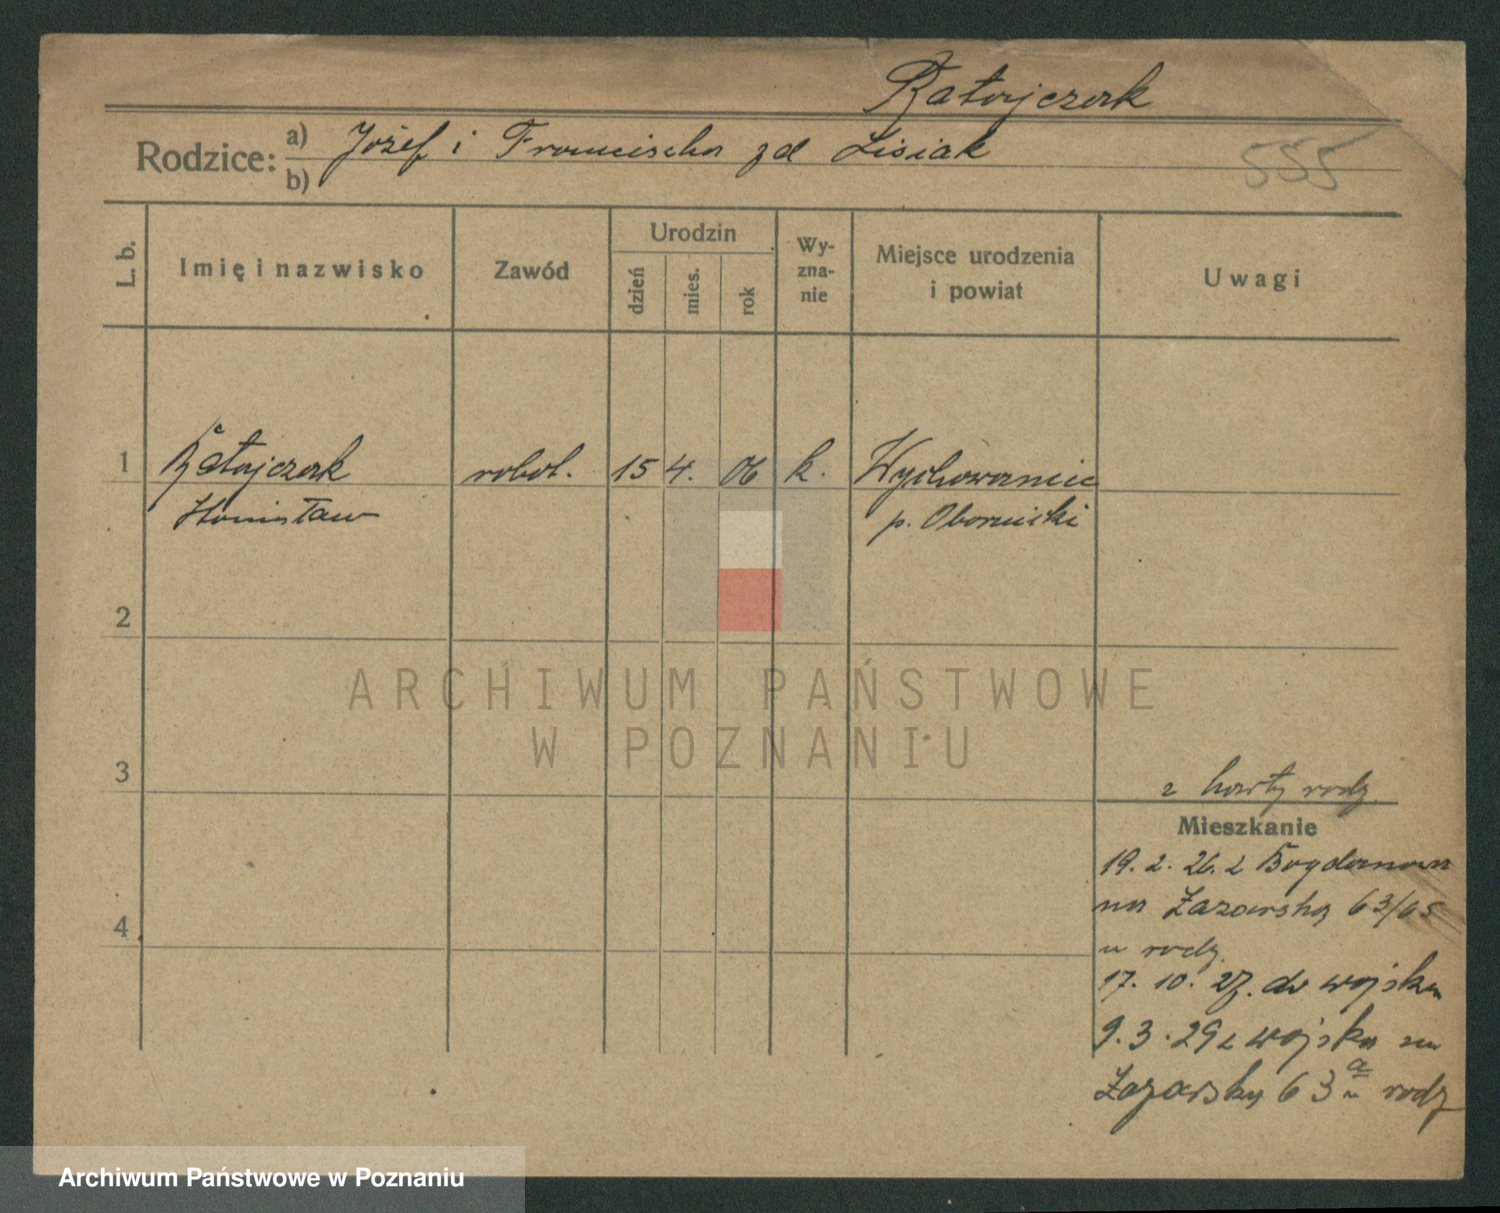 Ratajczak
Rodzice: a) Józef i Franciszka zd Lisiak
b)
555
L. b.
Imię i nazwisko
Zawód
Urodzin
dzień
mies.
rok
Wy-
zna-
nie
Miejsce urodzenia
i powiat
Uwagi
1 Ratajczak robot. 15 4. 06 k. Wychowaniec
Stanisław p. Obornicki
2
3
4
z karty rodz.
Mieszkanie
19. 2. 26. z Bogdanowa
na Łazarską 63/65
u rodz.
17. 10. 27. do wojska
9. 3. 29 z wojska na
Łazarską 63a u rodz
ARCHIWUM PAŃSTWOWE
W POZNANIU
Archiwum Państwowe w Poznaniu